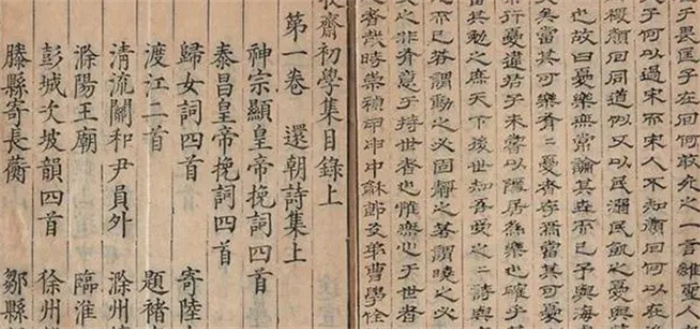 于畏匡子在回何敢死之一言雖聖人
子何以過宋而宋人不知顏回何以在
稷顏回同道似又以民溺民飢之憂
也故曰憂樂無常論其而已予與海
矣無當其可樂者憂者存焉當其可憂
行憂違君子未嘗以隱居為樂也確乎
當其勉之庶天下後世知吾之二詩與
之而已若謂動之必固靜之若謂曉之必
之非有意于持世者也惟無心于世者
者哉時崇禎甲申中秋節友弟曹學佺
牧齋初學集目錄上
第一卷 還朝詩集上
神宗顯皇帝挽詞四首
泰昌皇帝挽詞四首
歸女詞四首 寄陸
渡江二首 題褚
清流關和尹員外 滁州
滁陽王廟 臨淮
彭城次坡韻四首 徐州
滕縣寄長蘅 鄒縣